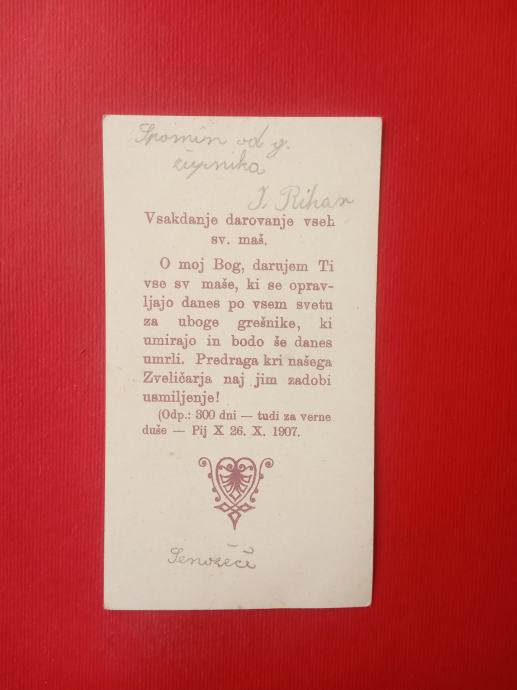 Spomin od g.
župnika
J. Rihar
Vsakdanje darovanje vseh
sv. maš.
O moj Bog, darujem Ti
vse sv maše, ki se oprav-
ljajo danes po vsem svetu
za uboge grešnike, ki
umirajo in bodo še danes
umrli. Predraga kri našega
Zveličarja naj jim zadobi
usmiljenje!
(Odp.: 300 dni — tudi za verne
duše — Pij X 26. X. 1907.
Senožeče